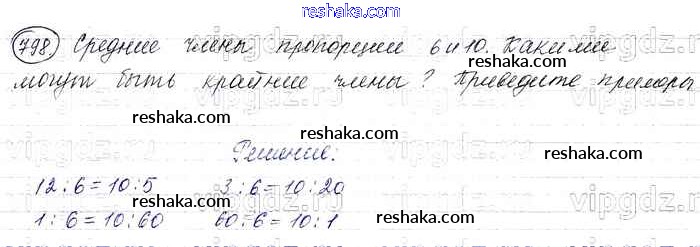 reshaka.com
798. Средние члены пропорции 6 и 10. Какими
могут быть крайние члены? Приведите примеры
reshaka.com reshaka.com
Решение:
12:6=10:5 3:6=10:20
reshaka.com reshaka.com
1:6=10:60 60:6=10:1
vipgdz.ru
reshaka.com